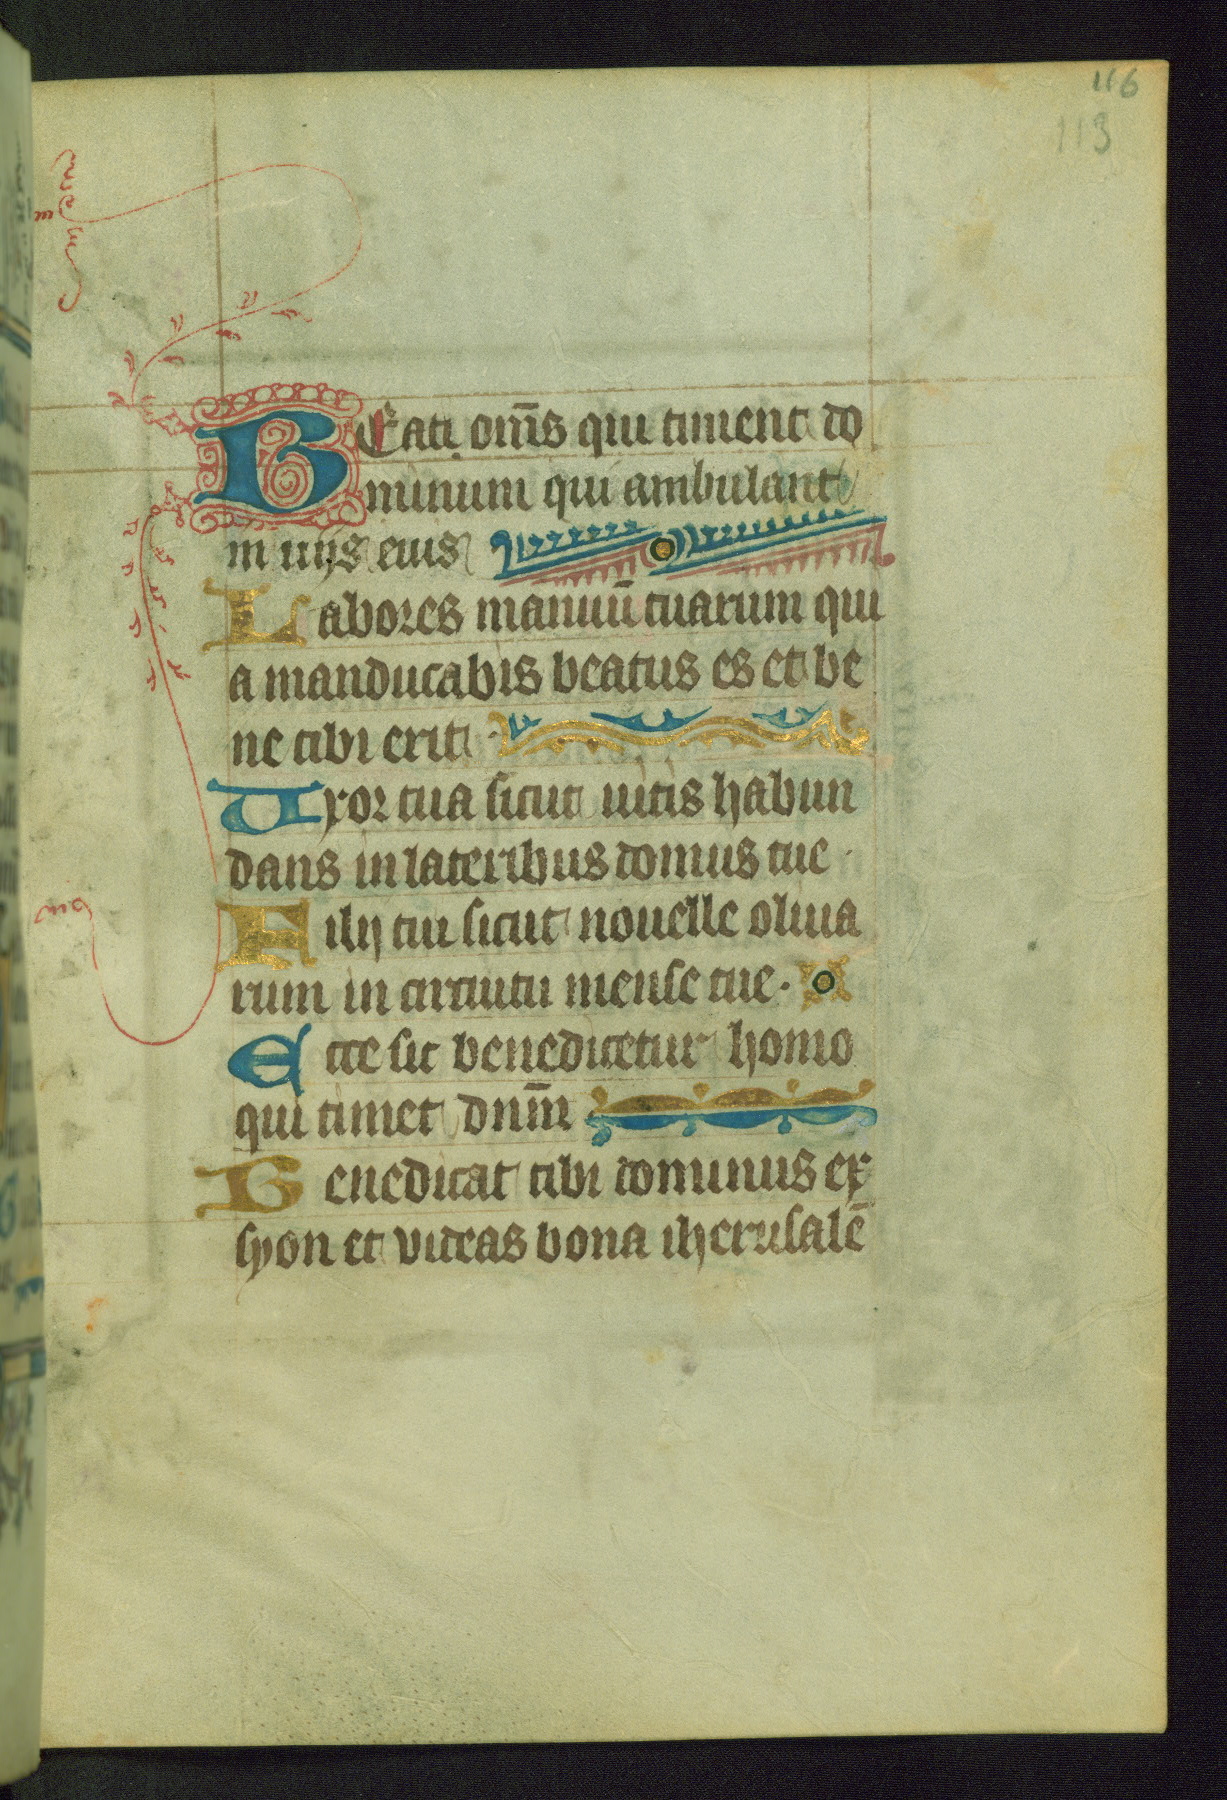 116
113
BEati om̄s qui timent do
minum qui ambulant
in uijs eius
Labores manuū tuarum qui
a manducabis beatus es et be
ne tibi erit ·
Uxor tua sicut uitis habun
dans in lateribus domus tue ·
Filij tui sicut nouelle oliua
rum in circuitu mense tue ·
Ecce sic benedicetur homo
qui timet dnm̄
Benedicat tibi dominus ex
syon et videas bona iherusalē